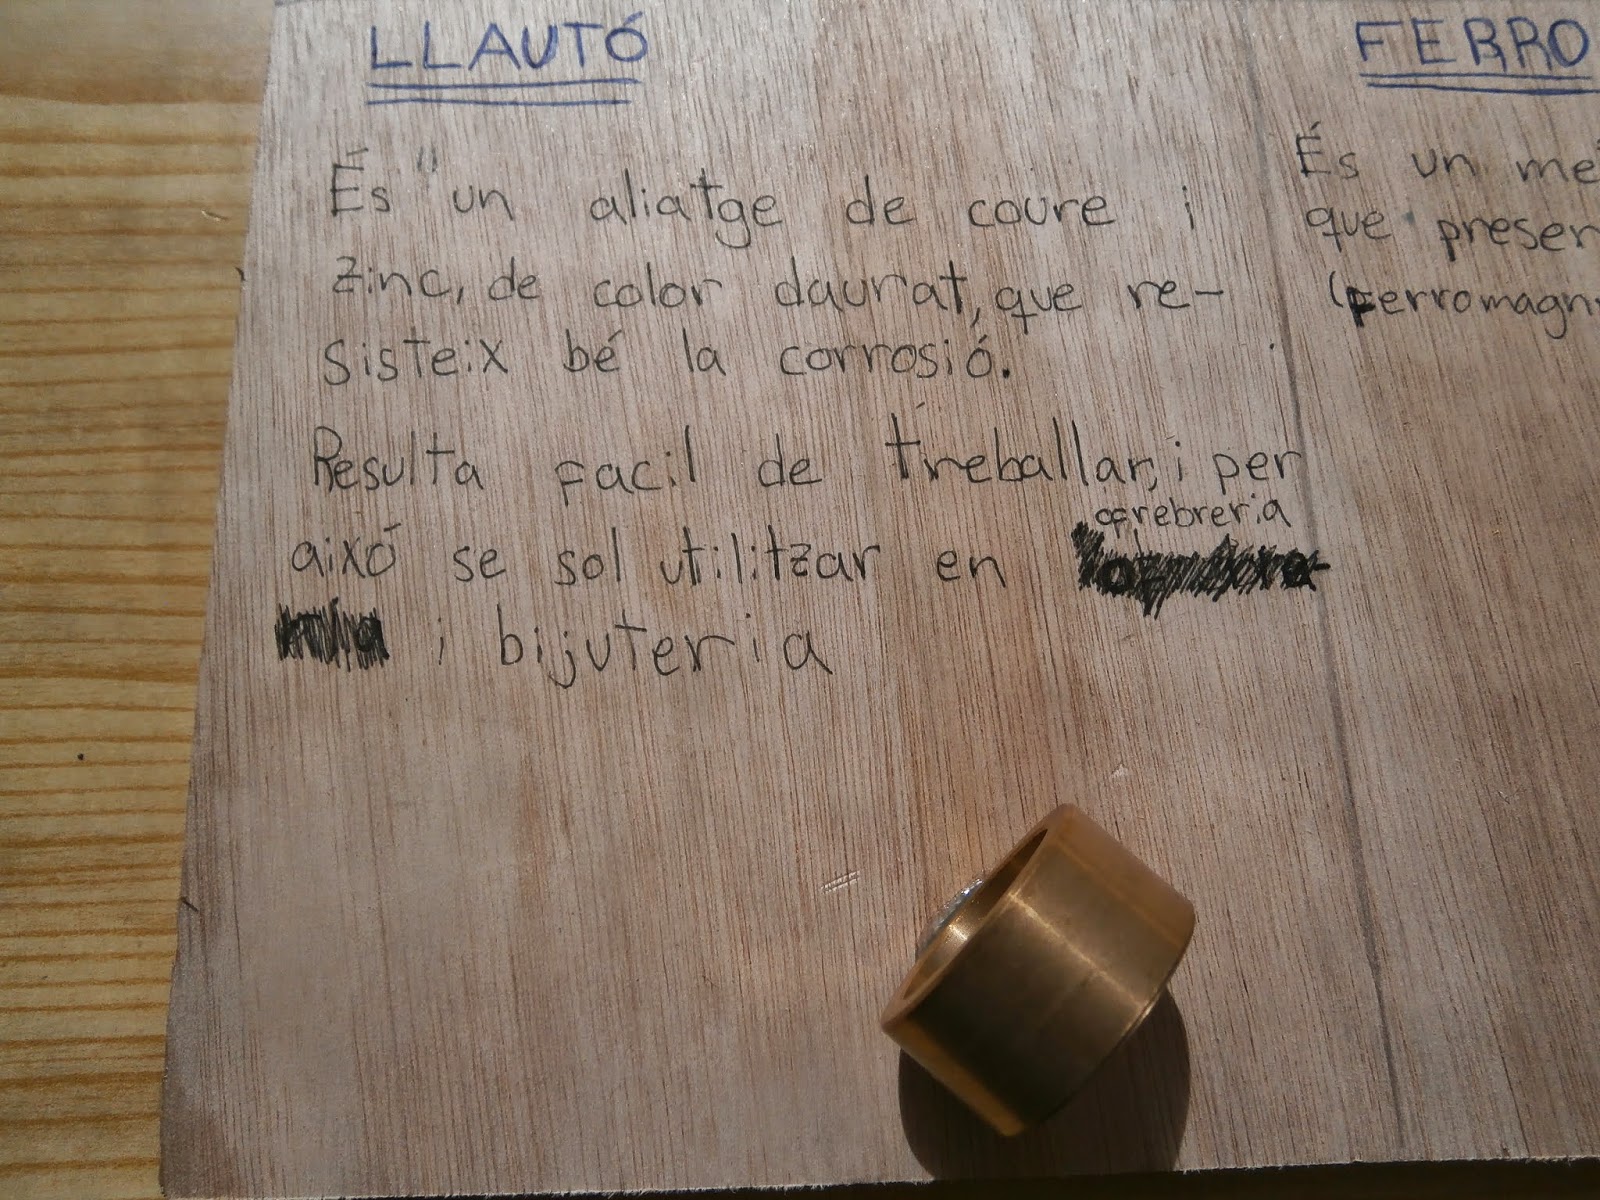 LLAUTÓ
És un aliatge de coure i
zinc, de color daurat, que re-
sisteix bé la corrosió.
Resulta facil de treballar, i per
això se sol utilitzar en ofrebreria
i bijuteria
FERRO
És un me
que presen
(Ferromagn